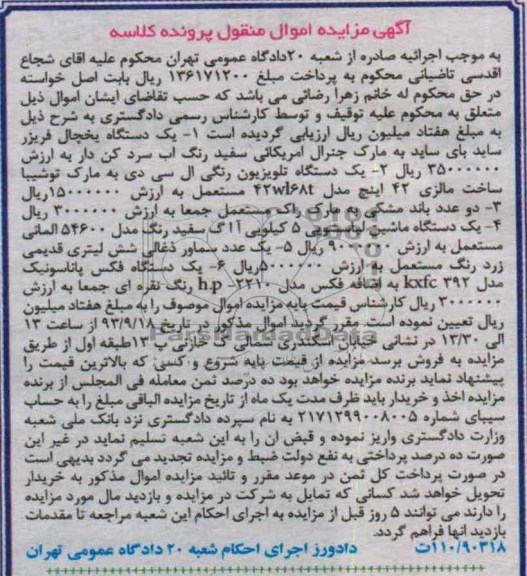 آگهی مزایده اموال منقول پرونده کلاسه
به موجب اجرائیه صادره از شعبه ۲۰دادگاه عمومی تهران محکوم علیه اقای شجاع
اقدسی تاضیانی محکوم به پرداخت مبلغ ۱۳۶۱۷۱۲۰۰ ریال بابت اصل خواسته
در حق محکوم له خانم زهرا رضائی می باشد که حسب تقاضای ایشان اموال ذیل
متعلق به محکوم علیه توقیف و توسط کارشناس رسمی دادگستری به شرح ذیل
به مبلغ هفتاد میلیون ریال ارزیابی گردیده است ۱- یک دستگاه یخچال فریزر
ساید بای ساید به مارک جنرال امریکائی سفید رنگ اب سرد کن دار به ارزش
۳۵۰۰۰۰۰۰ ریال ۲- یک دستگاه تلویزیون رنگی ال سی دی به مارک توشیبا
ساخت مالزی ۴۲ اینچ مدل ۴۲wl۶۸t مستعمل به ارزش ۱۵۰۰۰۰۰۰ریال
۳- دو عدد باند مشکی به مارک راک مستعمل جمعا به ارزش ۳۰۰۰۰۰۰ ریال
۴- یک دستگاه ماشین لباسشویی ۵ کیلویی آ ا گ سفید رنگ مدل ۵۴۶۰۰ المانی
مستعمل به ارزش ۹۰۰۰۰۰۰ ریال ۵- یک عدد سماور ذغالی شش لیتری قدیمی
زرد رنگ مستعمل به ارزش ۵۰۰۰۰۰۰ریال ۶- یک دستگاه فکس پاناسونیک
مدل kxfc ۳۹۲ به اضافه فکس مدل h.p -۲۲۱۰ رنگ نقره ای جمعا به ارزش
۳۰۰۰۰۰۰ ریال کارشناس قیمت پایه مزایده اموال موصوف را به مبلغ هفتاد میلیون
ریال تعیین نموده است. مقرر گردید اموال مذکور در تاریخ ۹۳/۹/۱۸ از ساعت ۱۳
الی ۱۳/۳۰ در نشانی خیابان اسکندری شمالی ک خازنی پ ۱۳طبقه اول از طریق
مزایده به فروش برسد مزایده از قیمت پایه شروع و کسی که بالاترین قیمت را
پیشنهاد نماید برنده مزایده خواهد بود ده درصد ثمن معامله فی المجلس از برنده
مزایده اخذ و خریدار باید ظرف مدت یک ماه از تاریخ مزایده الباقی مبلغ را به حساب
سیبای شماره ۲۱۷۱۲۹۹۰۰۸۰۰۵ به نام سپرده دادگستری نزد بانک ملی شعبه
وزارت دادگستری واریز نموده و قبض ان را به این شعبه تسلیم نماید در غیر این
صورت ده درصد پرداختی به نفع دولت ضبط و مزایده تجدید می گردد بدیهی است
در صورت پرداخت کل ثمن در موعد مقرر و تائید مزایده اموال مذکور به خریدار
تحویل خواهد شد کسانی که تمایل به شرکت در مزایده و بازدید مال مورد مزایده
را دارند می توانند ۵ روز قبل از مزایده به اجرای احکام این شعبه مراجعه تا مقدمات
بازدید انها فراهم گردد.
۱۱۰/۹۰۳۱۸ت دادورز اجرای احکام شعبه ۲۰ دادگاه عمومی تهران